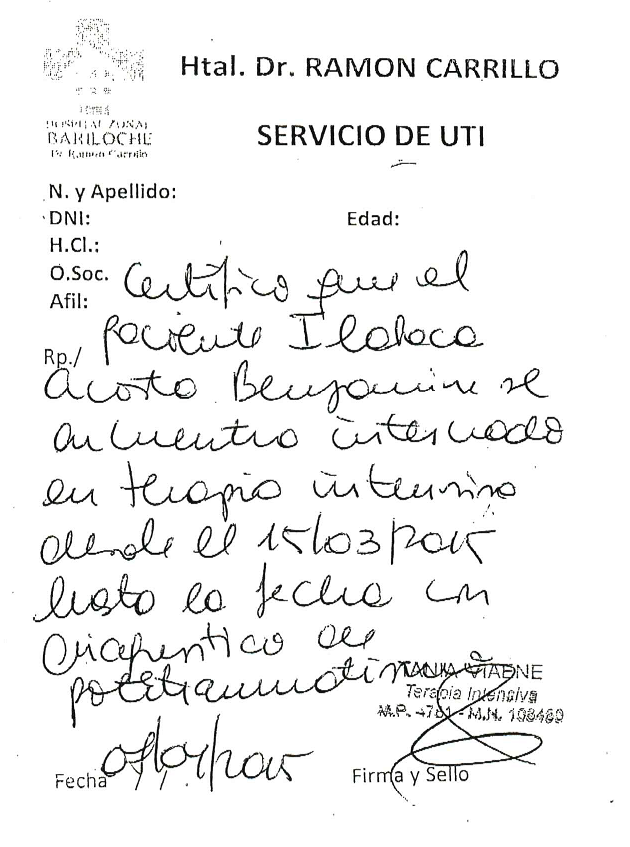 Htal. Dr. RAMON CARRILLO
HOSPITAL ZONAL
BARILOCHE
Dr. Ramon Carrillo
SERVICIO DE UTI
N. y Apellido:
DNI: Edad:
H.Cl.:
O.Soc.
Afil:
Rp./
Certifico que el
paciente Ilalaca
Acosta Benjamin se
encuentra internado
en terapia intensiva
desde el 15/03/2015
hasta la fecha con
Diagnostico de
politraumatismo
TANIA VIAENE
Terapia Intensiva
M.P. 4781 - M.N. 108469
Fecha
Firma y Sello